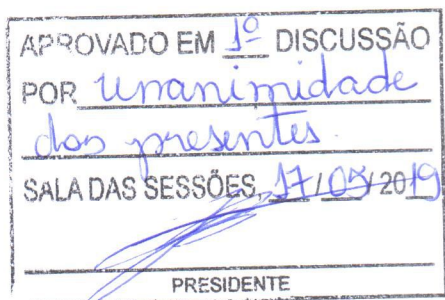 APROVADO EM 1º DISCUSSÃO
POR unanimidade
dos presentes.
SALA DAS SESSÕES, 17/05/2019
PRESIDENTE